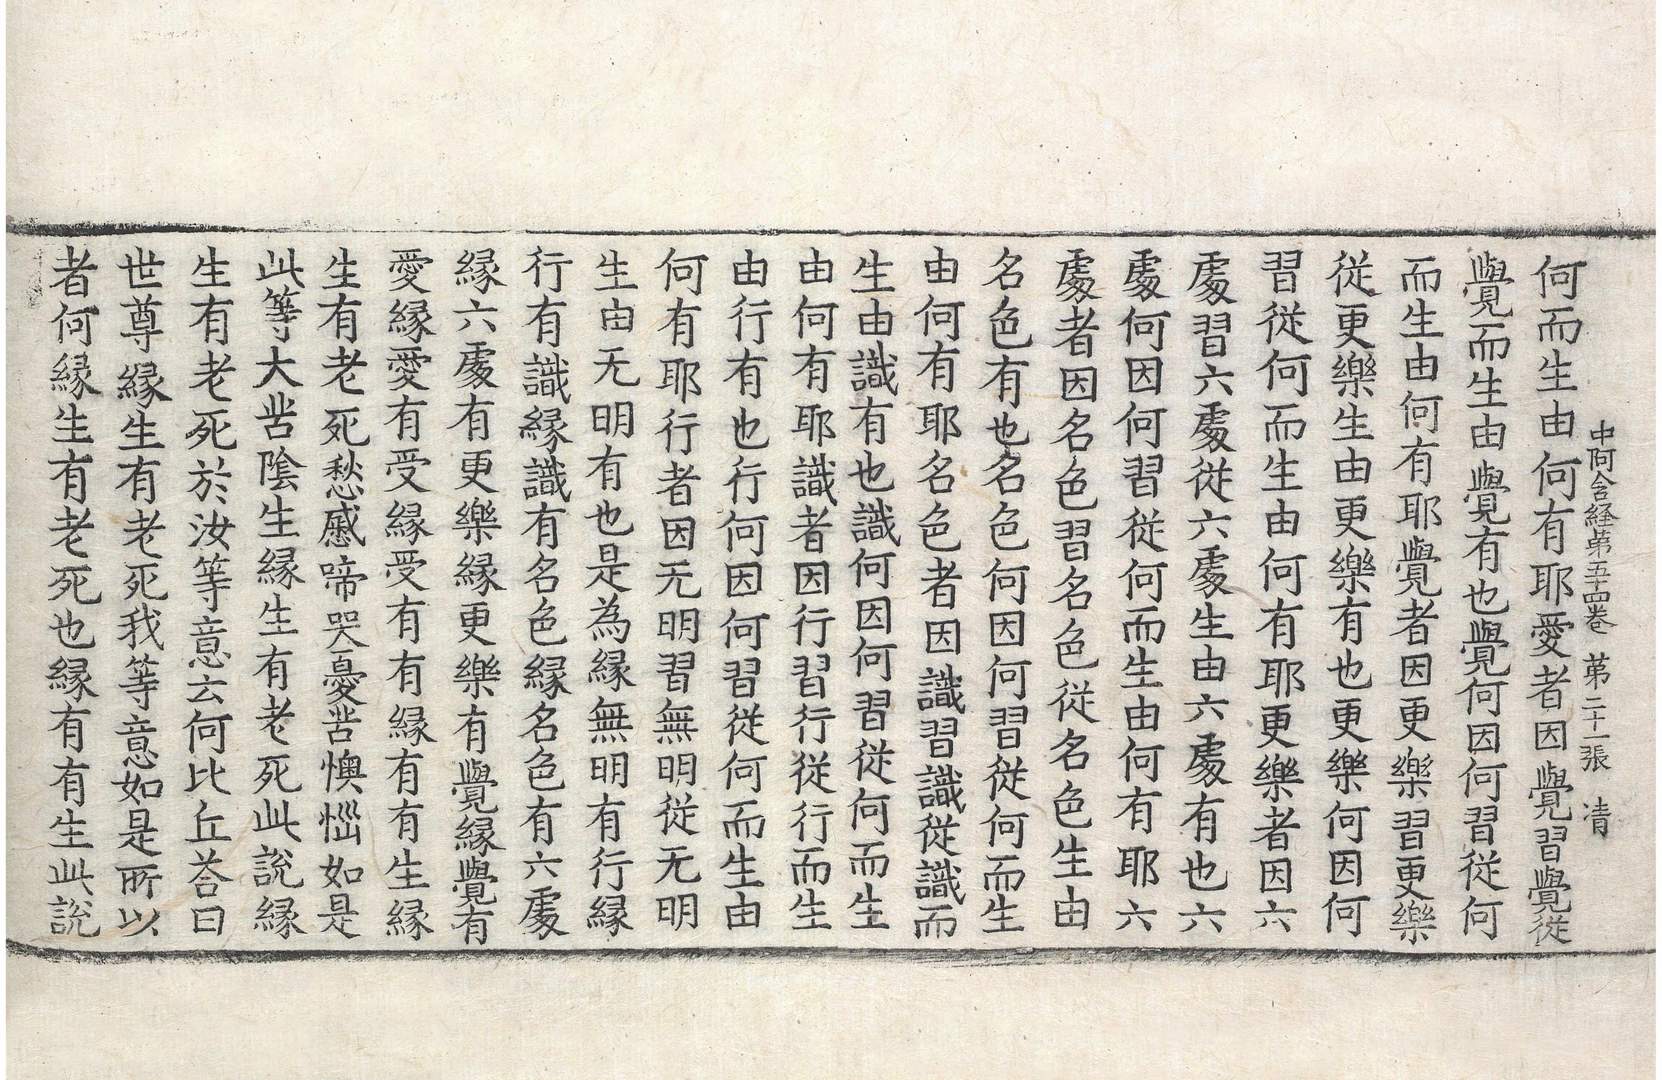 中阿含経第五十四卷 第二十一張 清
何而生由何有耶愛者因覺習覺從
覺而生由覺有也覺何因何習從何
而生由何有耶覺者因更樂習更樂
從更樂生由更樂有也更樂何因何
習從何而生由何有耶更樂者因六
處習六處從六處生由六處有也六
處何因何習從何而生由何有耶六
處者因名色習名色從名色生由
名色有也名色何因何習從何而生
由何有耶名色者因識習識從識而
生由識有也識何因何習從何而生
由何有耶識者因行習行從行而生
由行有也行何因何習從何而生由
何有耶行者因无明習無明從无明
生由无明有也是為緣無明有行緣
行有識緣識有名色緣名色有六處
緣六處有更樂緣更樂有覺緣覺有
愛緣愛有受緣受有有緣有有生緣
生有老死愁慼啼哭憂苦懊惱如是
此等大苦陰生緣生有老死此說緣
生有老死於汝等意云何比丘荅曰
世尊緣生有老死我等意如是所以
者何緣生有老死也緣有有生此說